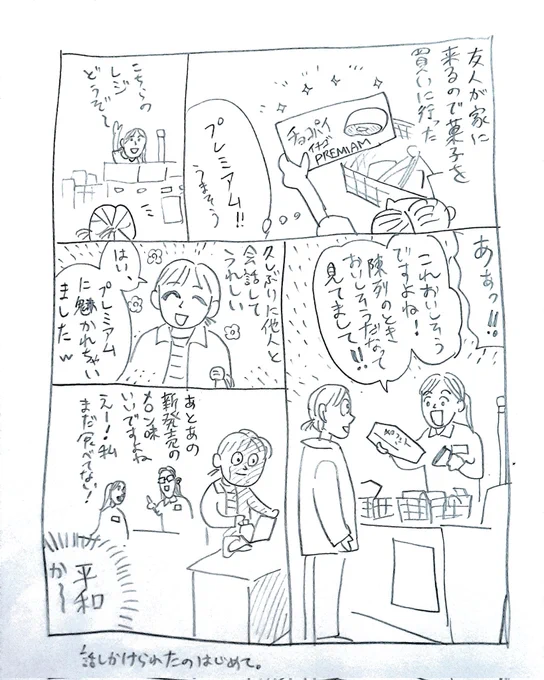 友人が家に
来るので菓子を
買いに行った
チョコパイ
イチゴ
PREMIAM
プレミアム!!
うまそう
こちらの
レジ
どうぞ〜
あぁっ!!
これおいしそう
ですよね!
陳列のとき
おいしそうだなって
見てまして!!
久しぶりに他人と
会話して
うれしい
はい、
プレミアム
に魅かれちゃい
ましたw
あとあの
新発売の
メロン味
いいですよね
えー!私
まだ食べてない!
平和
か〜
話しかけられたのはじめて。